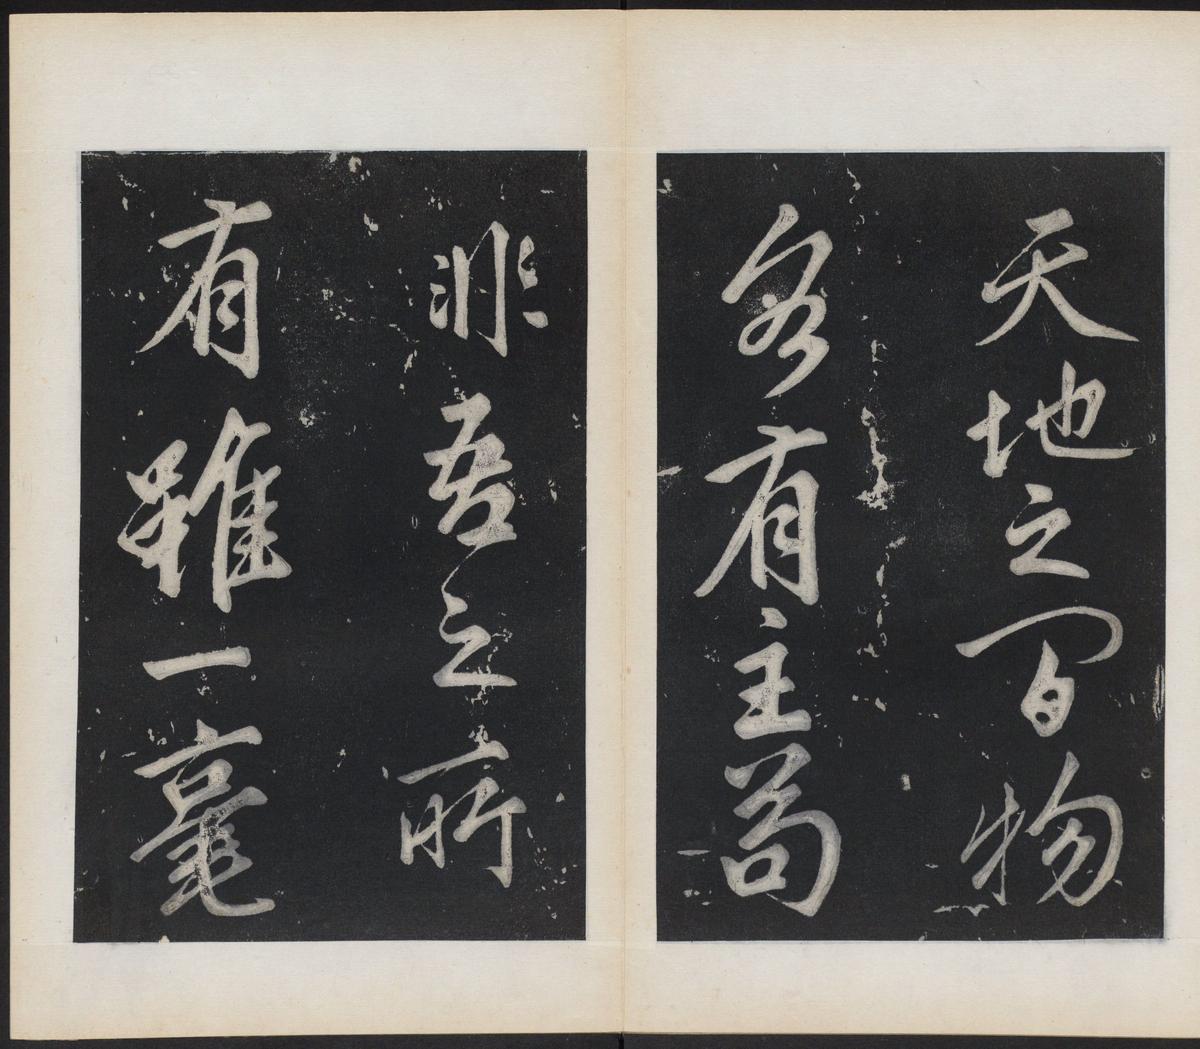 天地之百物
各有主苟
非吾之所
有雖一毫